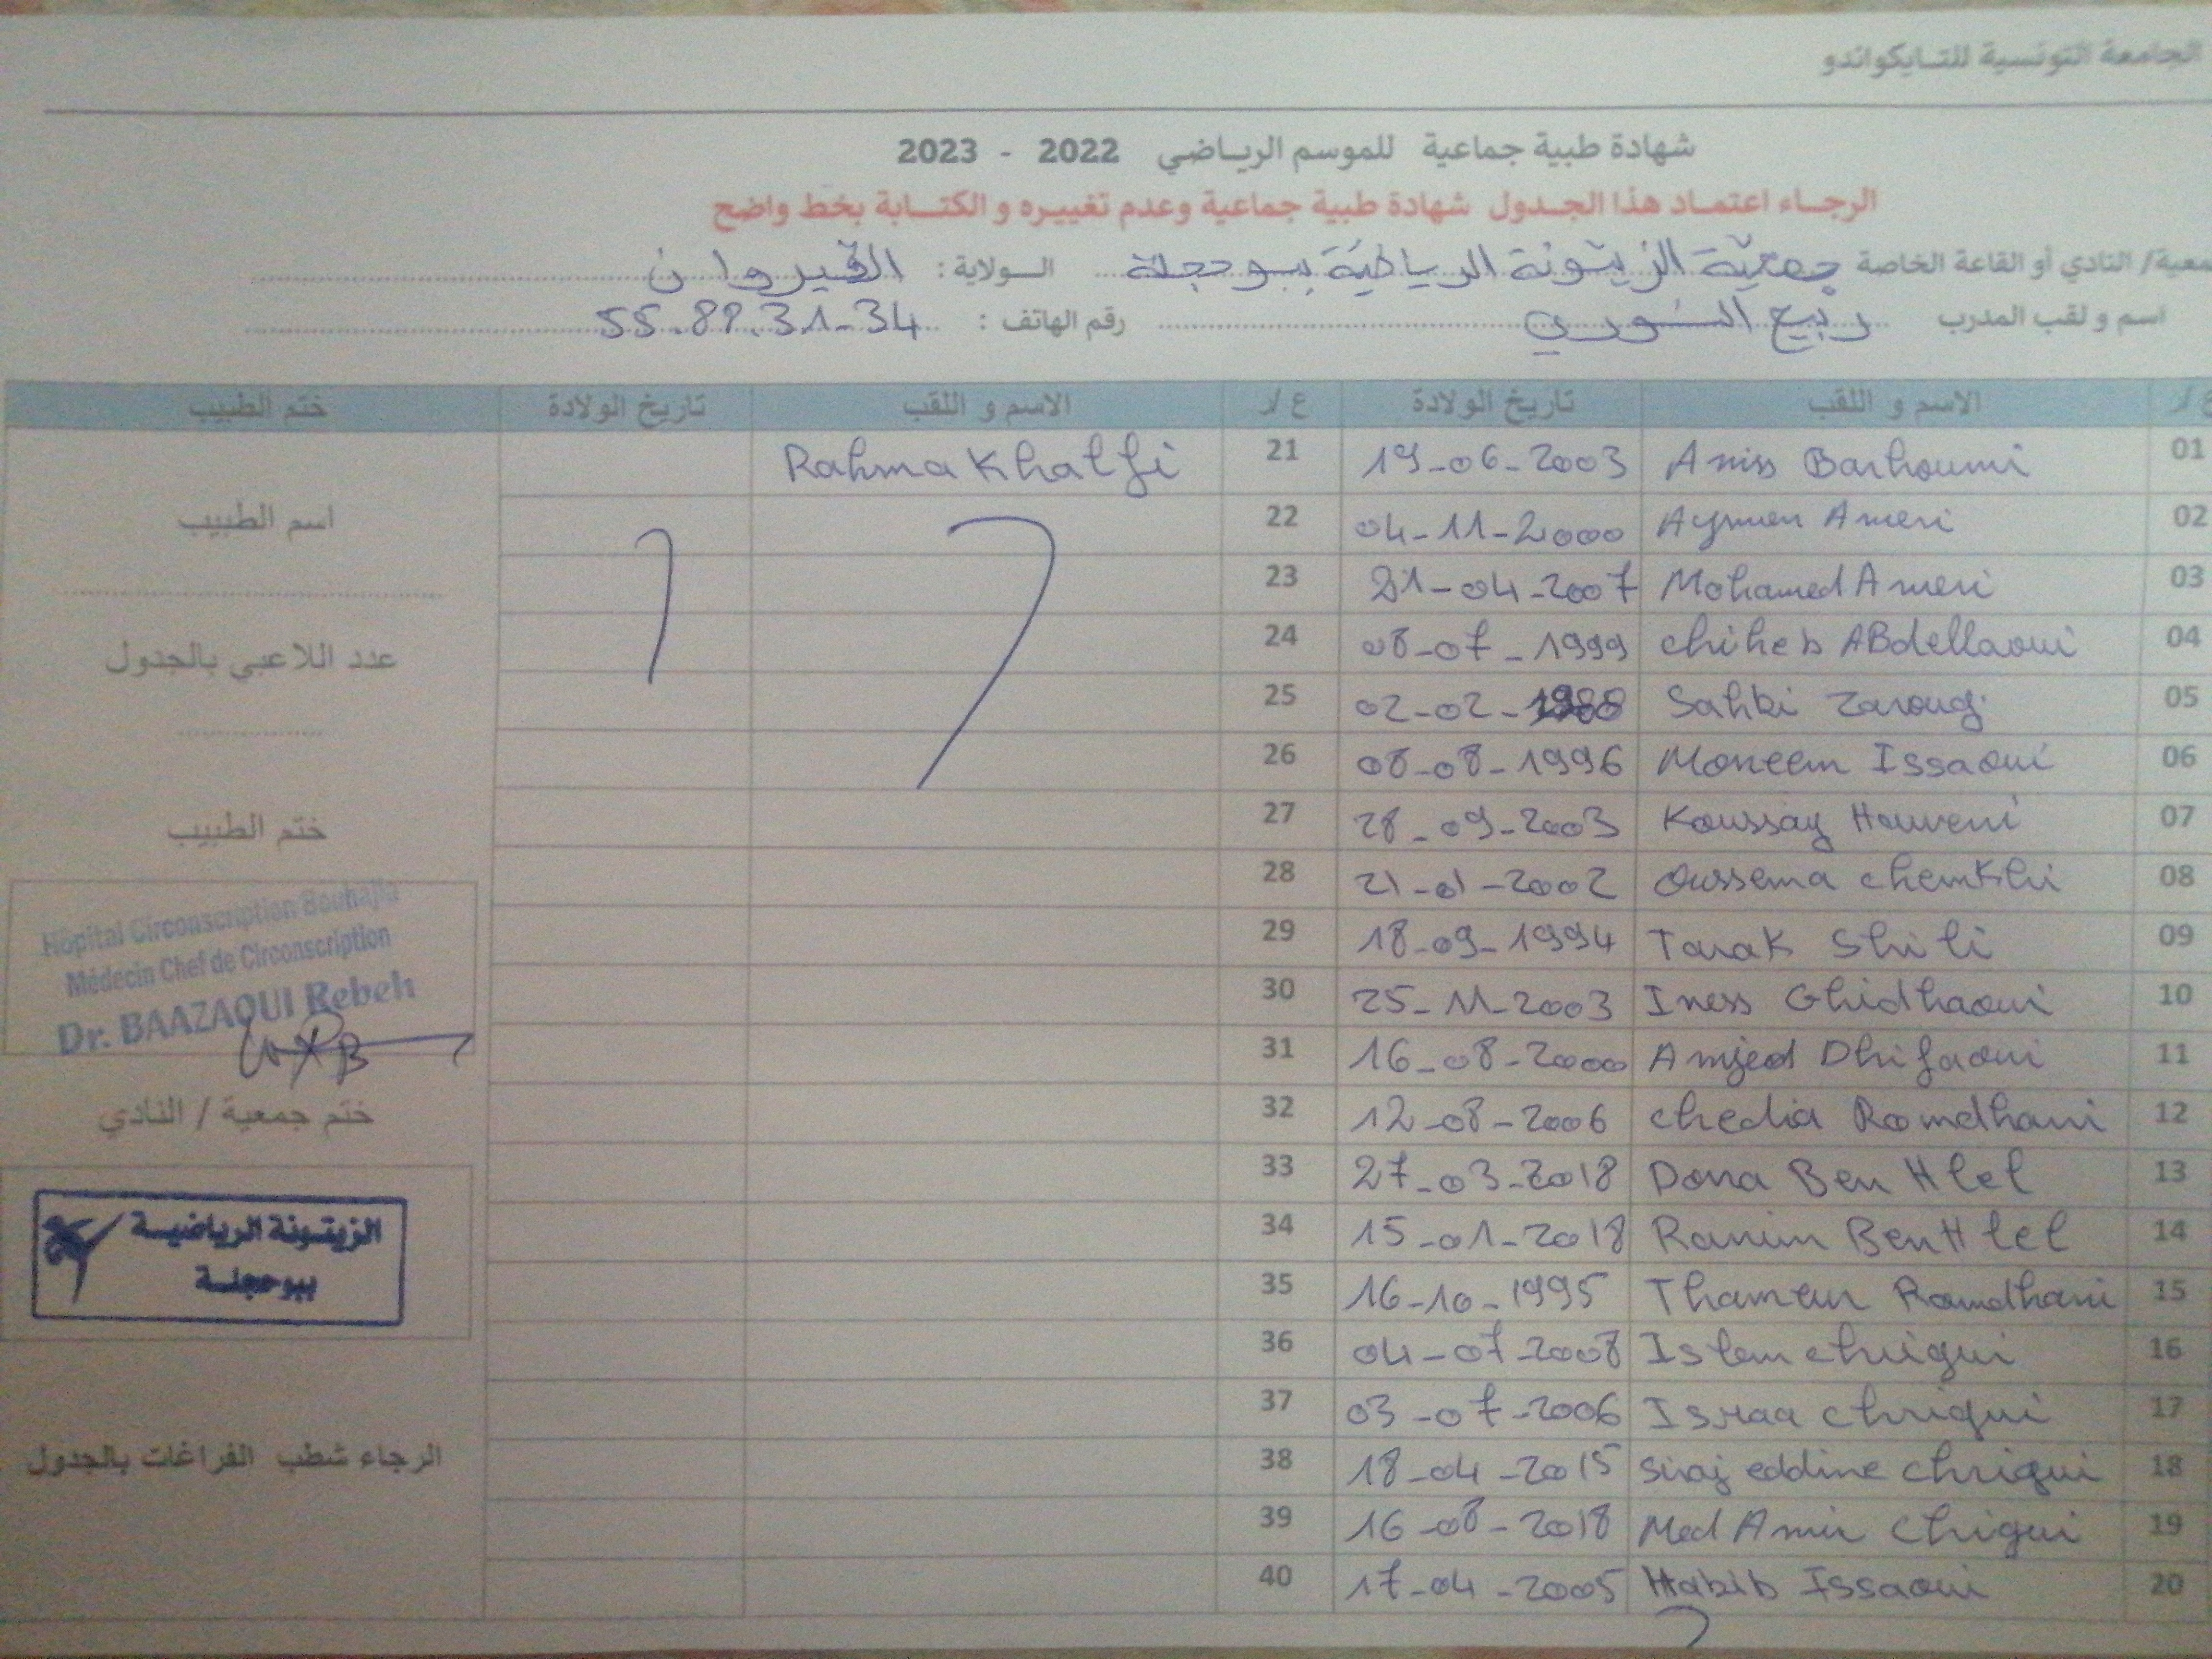 الجامعة التونسية للتـايكواندو
شهادة طبية جماعية للموسم الريـاضي 2022 - 2023
الرجـاء اعتمـاد هذا الجـدول شهادة طبية جماعية وعدم تغييـره و الكتــابة بخط واضح
معية/ النادي أو القاعة الخاصة جمعيّة الزيتونة الرياضيّة ببوحجلة الـولاية: القيروان
اسم و لقب المدرب ربيع رقم الهاتف : 55.89.31-34
ع/ الاسم و اللقب تاريخ الولادة ع/ الاسم و اللقب تاريخ الولادة ختم الطبيب
01 Aniss Barhoumi 19-06-2003 21 Rahma Khalfi
02 Aymen Ameri 04-11-2000 22
اسم الطبيب
03 Mohamed Ameri 21-04-2007 23
04 Chiheb ABdellaoui 08-07-1999 24
عدد اللاعبي بالجدول
05 Sahbi Zaroug 02-02-1988 25
06 Moneem Issaoui 08-08-1996 26
07 Koussay Houveni 28-09-2003 27
ختم الطبيب
08 Oussema chemkhi 21-01-2002 28
09 Tarak Shili 18-09-1994 29
Hôpital Circonscription Bouhajla
Médecin Chef de Circonscription
Dr. BAAZAOUI Rebeh
10 Iness Ghidhaoui 25-11-2003 30
11 Amjed Dhifaoui 16-08-2000 31
12 chedia Romdhani 12-08-2006 32
ختم جمعية / النادي
13 Dona Ben Hlel 27-03-2018 33
14 Ranim Ben Hlel 15-01-2018 34
الزيتـونة الرياضيـة
ببوحجلـة
15 Thameur Romdhani 16-10-1995 35
16 Islem chrigui 04-07-2008 36
17 Israa chrigui 03-07-2006 37
18 Siraj eddine chrigui 18-04-2015 38
الرجاء شطب الفراغات بالجدول
19 Med Amir Chrigui 16-08-2018 39
20 Habib Issaoui 17-04-2005 40